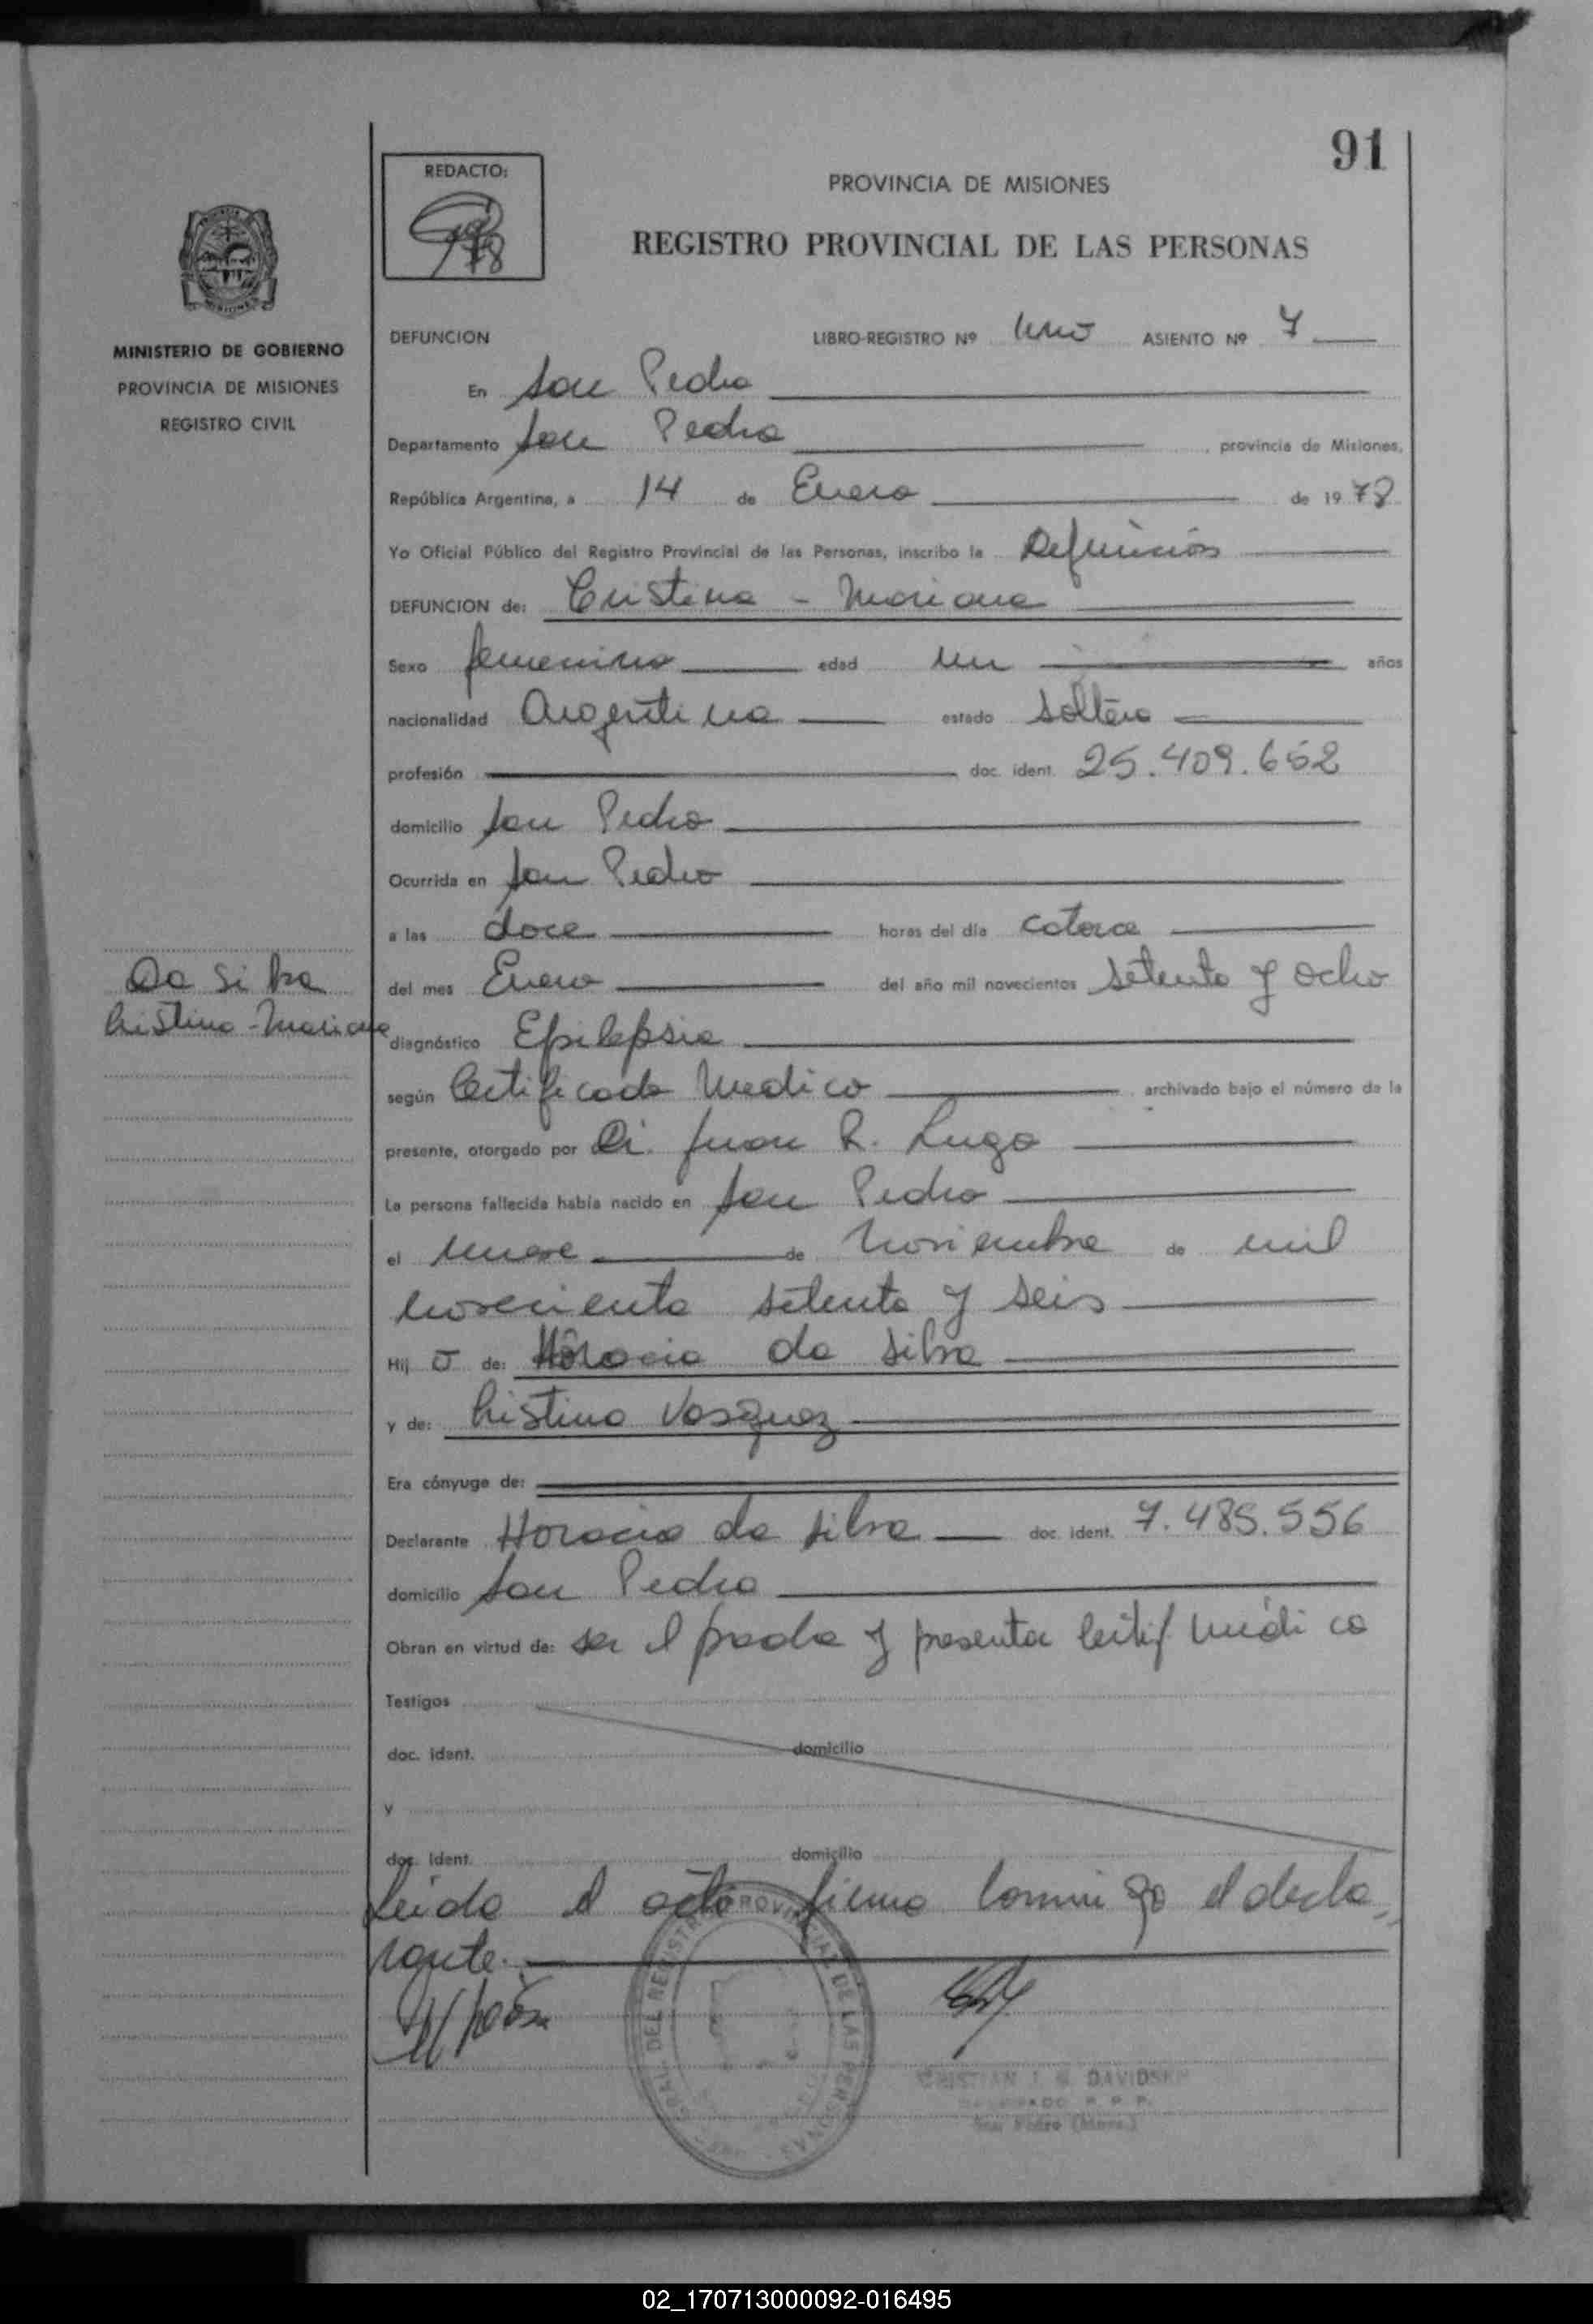 91
REDACTO:
PROVINCIA DE MISIONES
REGISTRO PROVINCIAL DE LAS PERSONAS
MINISTERIO DE GOBIERNO
PROVINCIA DE MISIONES
REGISTRO CIVIL
DEFUNCION LIBRO-REGISTRO Nº Uno ASIENTO Nº 7
En San Pedro
Departamento San Pedro, provincia de Misiones,
República Argentina, a 14 de Enero de 1978
Yo Oficial Público del Registro Provincial de las Personas, inscribo la Defunción
DEFUNCION de: Cristina - Mariana
Sexo femenino edad un años
nacionalidad Argentina estado Soltera
profesión doc. ident. 25.409.652
domicilio San Pedro
Ocurrida en San Pedro
a las doce horas del día catorce
del mes Enero del año mil novecientos setenta y ocho
Da Silva
Cristina - Mariana
diagnóstico Epilepsia
según Certificado Medico archivado bajo el número de la
presente, otorgado por Dr. Juan R. Lugo
La persona fallecida había nacido en San Pedro
el nueve de Noviembre de mil
novecientos setenta y seis
Hij a de: Horacio da Silva
y de: Cristina Vasquez
Era cónyuge de:
Declarante Horacio da Silva doc. ident. 7.485.556
domicilio San Pedro
Obran en virtud de: ser el padre y presentar Certif Médico
Testigos
doc. ident. domicilio
y
doc. ident. domicilio
Leida el acta firma conmigo el decla
rante.
DEL REGISTRO PROVINCIAL DE LAS PERSONAS
CRISTIAN DAVIDSEN
San Pedro
02_170713000092-016495